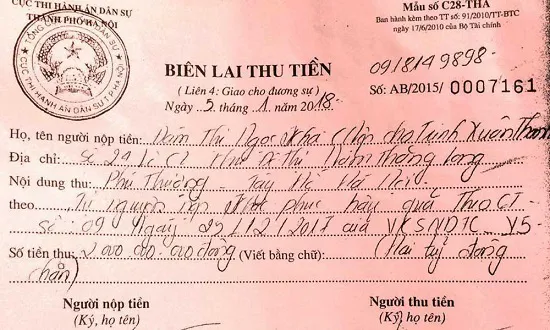 CỤC THI HÀNH ÁN DÂN SỰ
THÀNH PHỐ HÀ NỘI
Mẫu số C28-THA
Ban hành kèm theo TT số: 91/2010/TT-BTC
ngày 17/6/2010 của Bộ Tài chính
BIÊN LAI THU TIỀN
0918149898-
( Liên 4: Giao cho đương sự )
Số: AB/2015/ 0007161
Ngày 5 tháng 1 năm 2018-
Họ, tên người nộp tiền: Đàm Thị Ngọc Kha (Nộp cho Trịnh Xuân Thanh
Địa chỉ: Số 24 Lô C1 Khu đô thị Nam Thăng Long
Nội dung thu: Phú Thượng - Tây Hồ Hà Nội
theo Tự nguyện nộp khắc phục hậu quả Theo CT
Số: 09 Ngày 29/12/2017 của VKSNDTC V5-
Số tiền thu: 2 000 000.000 đồng (Viết bằng chữ) (Hai tỷ đồng
chẵn)
Người nộp tiền
Người thu tiền
(Ký, họ tên)
(Ký, họ tên)